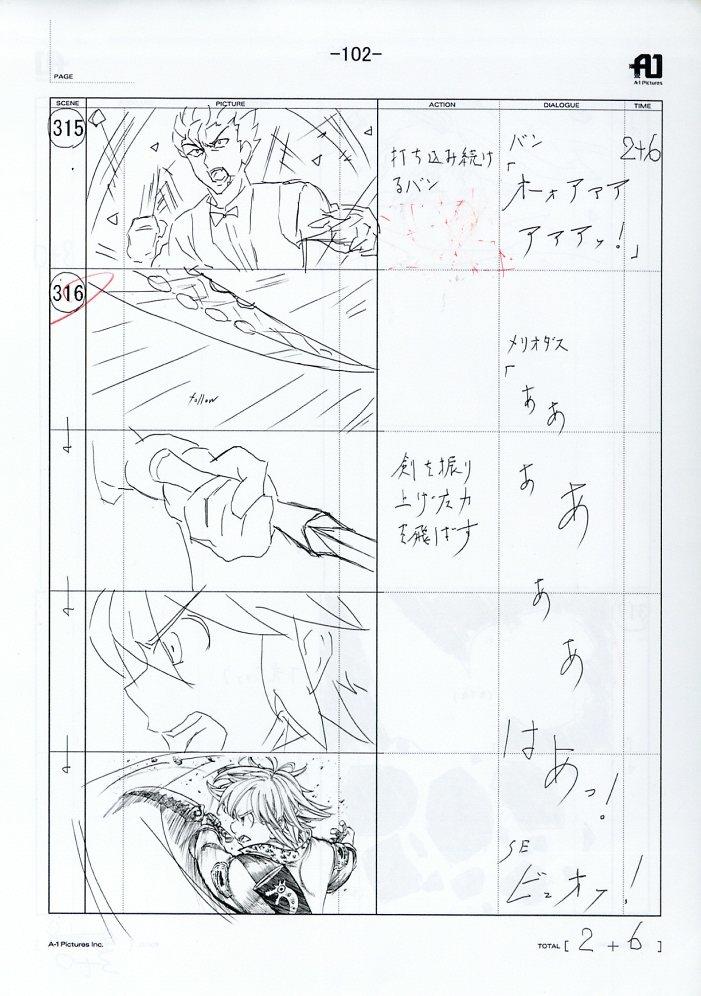 -102-
PAGE
A-1 Pictures
SCENE
PICTURE
ACTION
DIALOGUE
TIME
315
打ち込み続け
るバン
バン
「オーォアァア
アァアッ!」
2+6
316
follow
メリオダス
「ああ
剣を振り
上げ
を飛ばす
ああ
ああ
はあっ!
SE
ビュオッ!
A-1 Pictures Inc.
TOTAL [ 2 + 6 ]